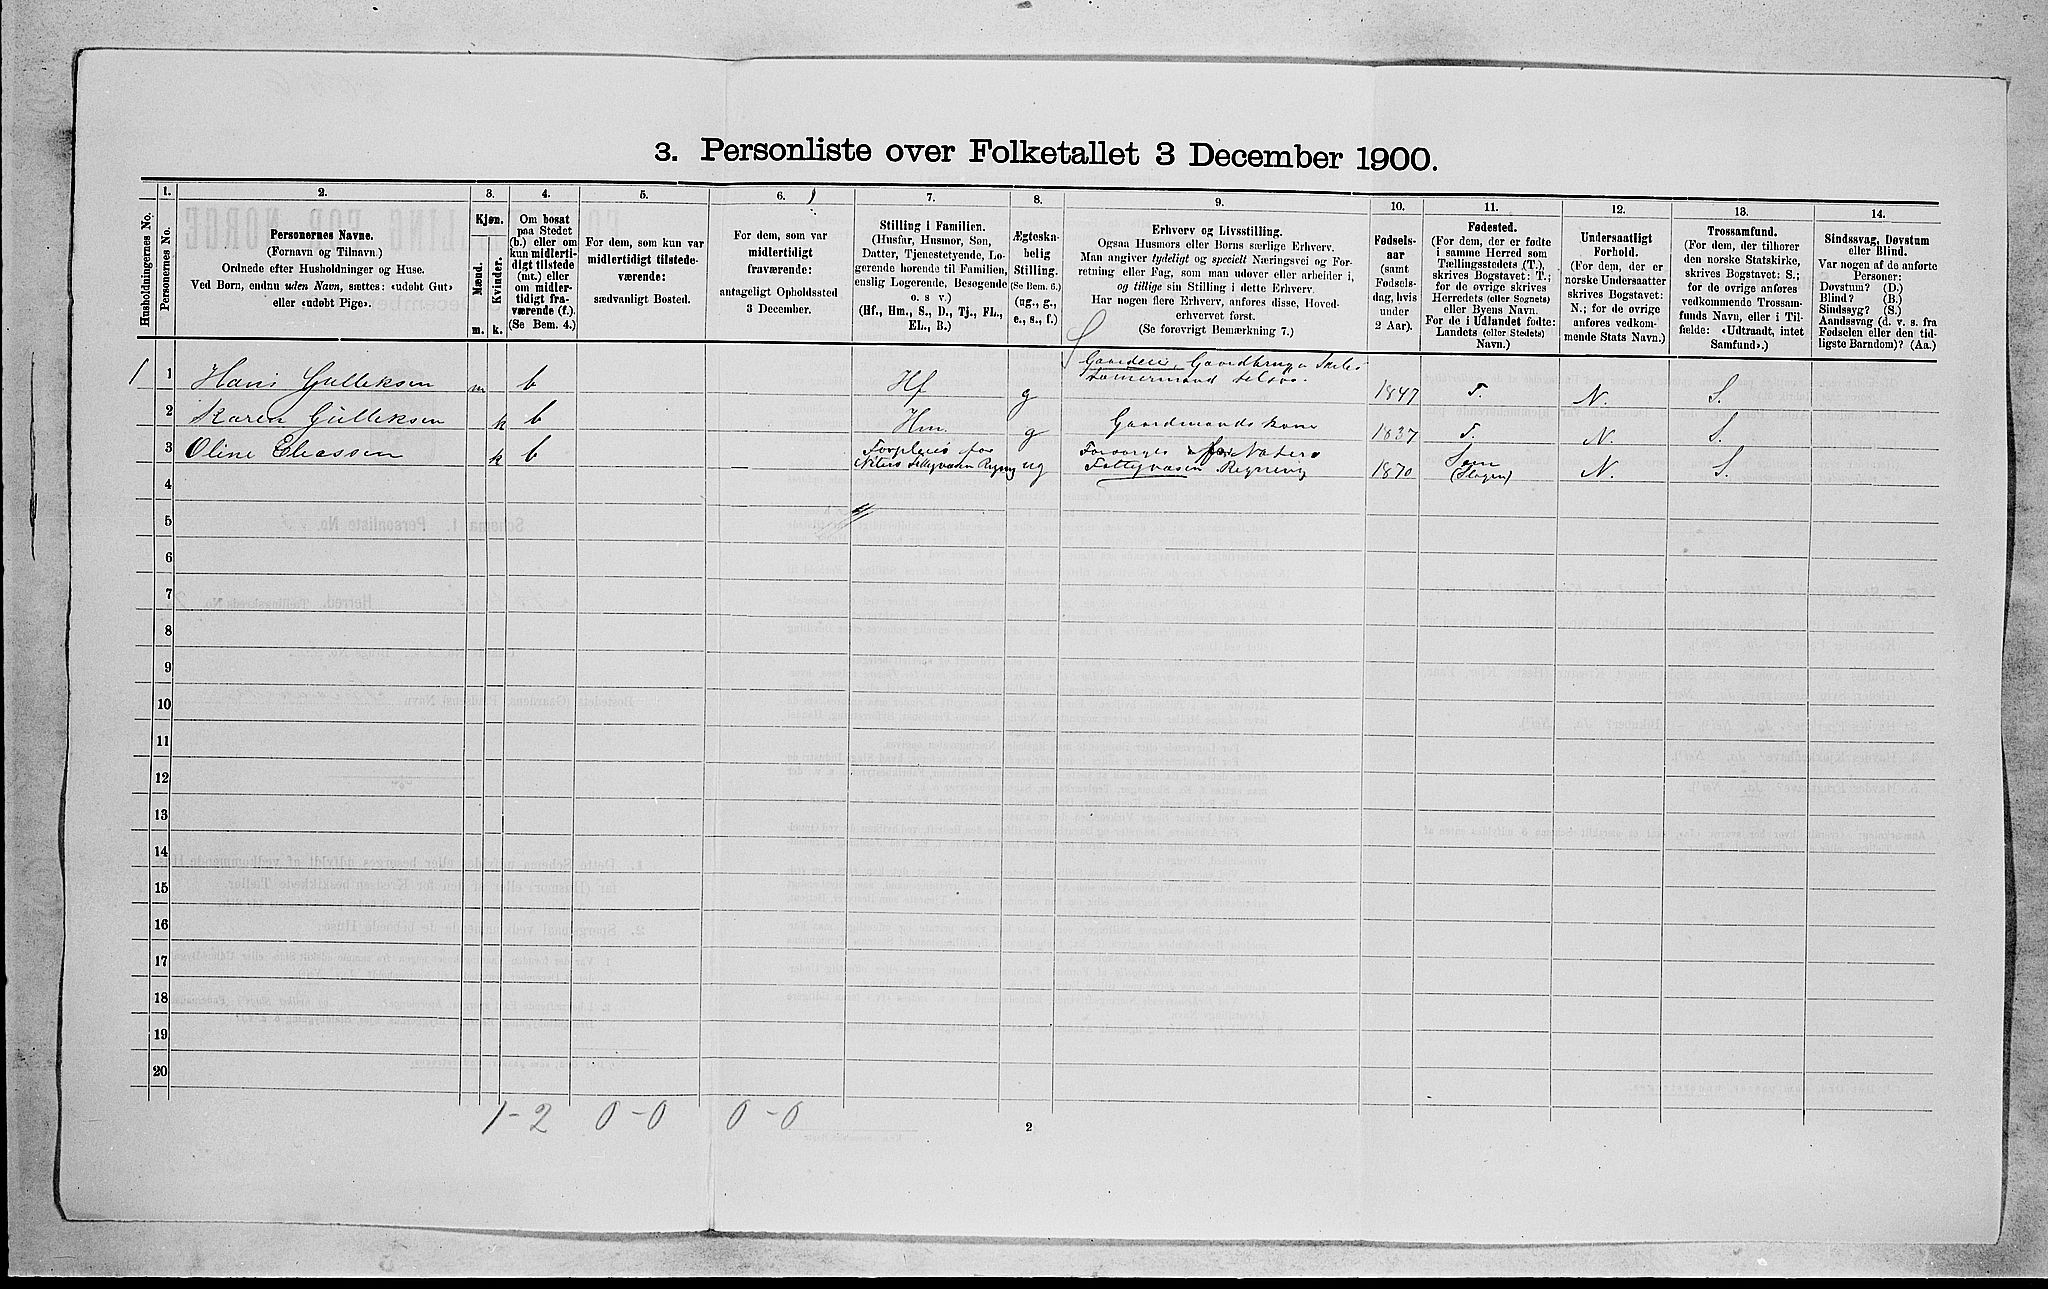 3. Personliste over Folketallet 3 December 1900.
Husholdningernes No.
1.
Personernes No.
2.
Personernes Navne.
(Fornavn og Tilnavn.)
Ordnede efter Husholdninger og Huse.
Ved Børn, endnu uden Navn, sættes: «udøbt Gut»
eller «udøbt Pige».
3.
Kjøn.
Mænd.
Kvinder.
m. k.
4.
Om bosat
paa Stedet
(b.) eller om
kun midlerti-
digt tilstede
(mt.) eller
om midler-
tidigt fra-
værende (f.).
(Se Bem. 4.)
5.
For dem, som kun var
midlertidigt tilstede-
værende:
sædvanligt Bosted.
6.
For dem, som var
midlertidigt
fraværende:
antageligt Opholdssted
3 December.
7.
Stilling i Familien.
(Husfar, Husmor, Søn,
Datter, Tjenestetyende, Lo-
gerende hørende til Familien,
enslig Logerende, Besøgende
o. s v.)
(Hf., Hm., S., D., Tj., FL.,
EL., B.)
8.
Ægteska-
belig
Stilling.
(Se Bem. 6.)
(ug., g.,
e., s., f.)
9.
Erhverv og Livsstilling.
Ogsaa Husmors eller Børns særlige Erhverv.
Man angiver tydeligt og specielt Næringsvei og For-
retning eller Fag, som man udøver eller arbeider i,
og tillige sin Stilling i dette Erhverv.
Har nogen flere Erhverv, anføres disse, Hoved-
erhvervet først.
(Se forøvrigt Bemærkning 7.)
10.
Fødsels-
aar
(samt
Fødsels-
dag, hvis
under
2 Aar).
11.
Fødested.
(For dem, der er fødte
i samme Herred som
Tællingsstedets (T.),
skrives Bogstavet: T.;
for de øvrige skrives
Herredets (eller Sognets)
eller Byens Navn.
For de i Udlandet fødte:
Landets (eller Stedets)
Navn.)
12.
Undersaatligt
Forhold.
(For dem, der er
norske Undersaatter
skrives Bogstavet:
N.; for de øvrige
anføres vedkom-
mende Stats Navn.)
13.
Trossamfund.
(For dem, der tilhører
den norske Statskirke,
skrives Bogstavet: S.;
for de øvrige anføres
vedkommende Trossam-
funds Navn, eller i Til-
fælde: «Udtraadt, intet
Samfund».)
14.
Sindssvag, Døvstum
eller Blind.
Var nogen af de anførte
Personer:
Døvstum? (D.)
Blind? (B.)
Sindssyg? (S.)
Aandssvag (d. v. s. fra
Fødselen eller den tid-
ligste Barndom)? (Aa.)
1 1 Hans Gulliksen m b Hf g Gaardeier, Gaardbrug 1847 T. N. S.
2 Karen Gulliksen k b Hm. g Gaardmandskone 1837 T. N. S.
3 Oline k b ug Regning 1870 Sem (Slagen) N. S.
4
5
6
7
8
9
10
11
12
13
14
15
16
17
18
19
20
1-2 0-0 0-0
2